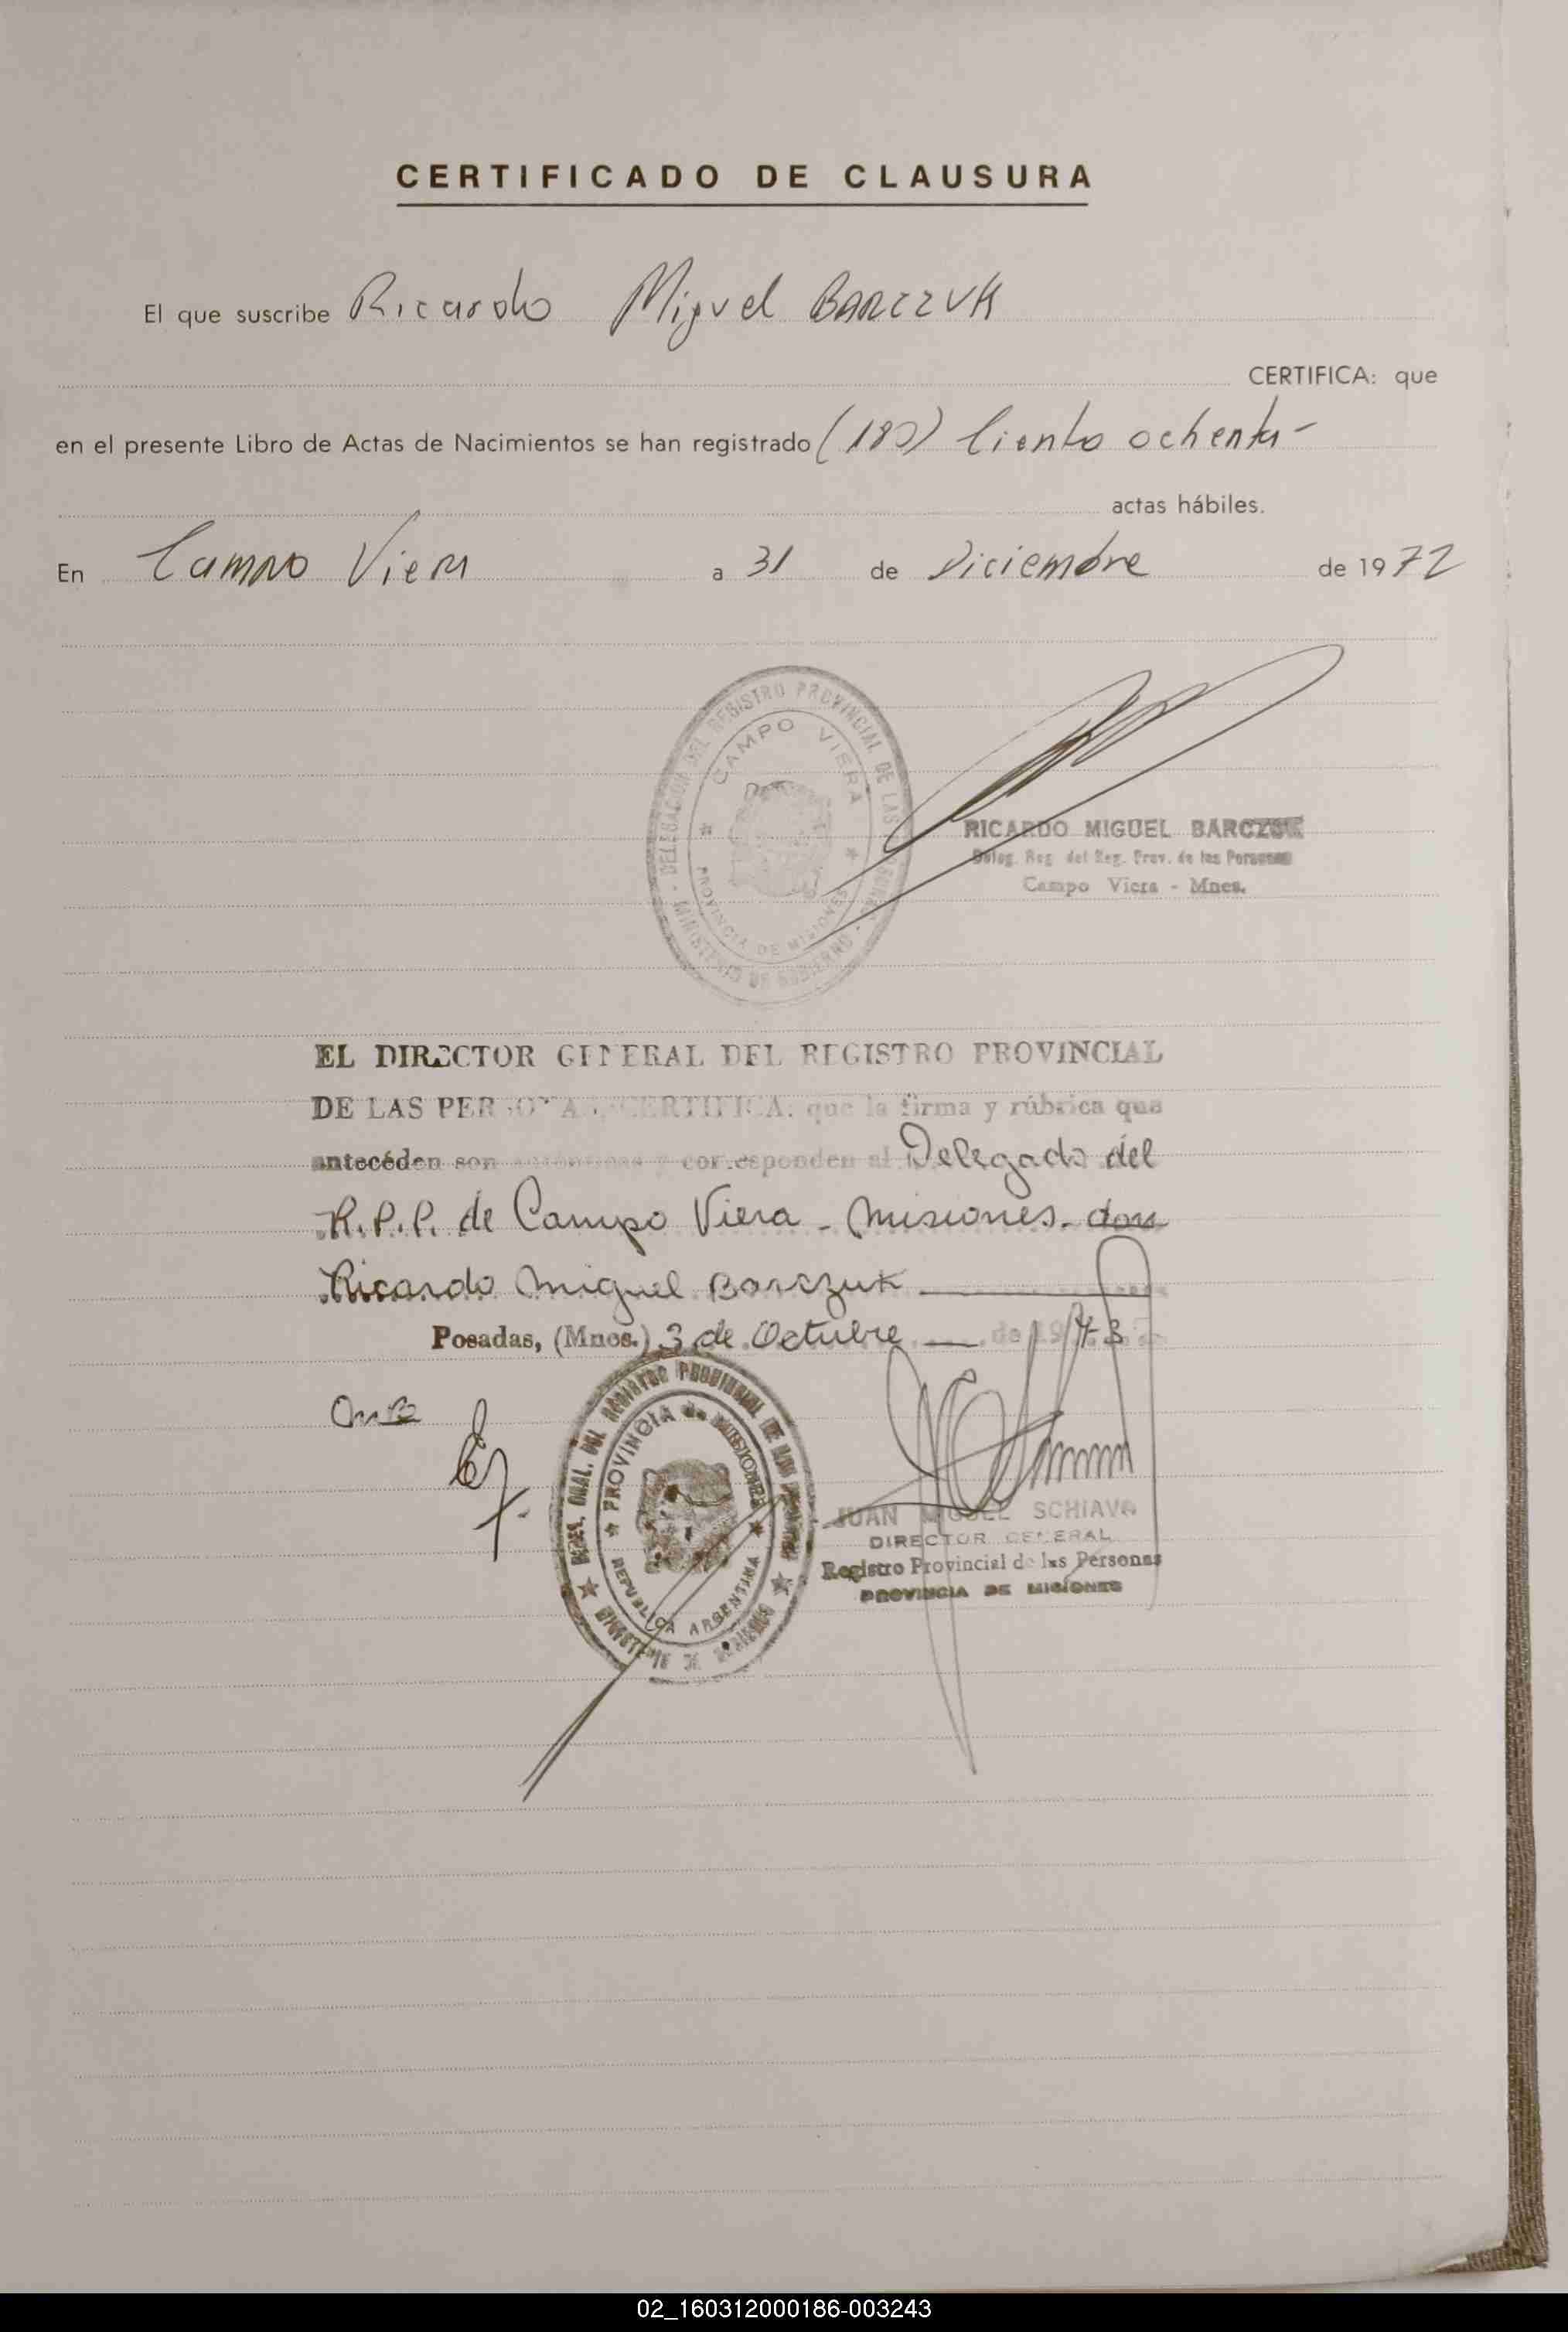 CERTIFICADO DE CLAUSURA
El que suscribe Ricardo Miguel BARCZUK
CERTIFICA: que
en el presente Libro de Actas de Nacimientos se han registrado (180) Ciento ochenta -
actas hábiles.
En Campo Viera a 31 de Diciembre de 1972
DELEGACION DEL REGISTRO PROVINCIAL DE LAS PERSONAS
CAMPO VIERA
PROVINCIA DE MISIONES
MINISTERIO DE GOBIERNO
RICARDO MIGUEL BARCZUK
Deleg. Reg. del Reg. Prov. de las Personas
Campo Viera - Mnes.
EL DIRECTOR GENERAL DEL REGISTRO PROVINCIAL
DE LAS PERSONAS CERTIFICA: que la firma y rúbrica que
antecéden son autenticas y corresponden al Delegado del
R.P.P. de Campo Viera - Misiones - don
Ricardo Miguel Barczuk
Posadas, (Mnes.) 3 de Octubre de 1973
DIREC. GRAL. DEL REGISTRO PROVINCIAL DE LAS PERSONAS
PROVINCIA de MISIONES
REPUBLICA ARGENTINA
MINISTERIO DE GOBIERNO
JUAN MIGUEL SCHIAVO
DIRECTOR GENERAL
Registro Provincial de las Personas
PROVINCIA DE MISIONES
02_160312000186-003243